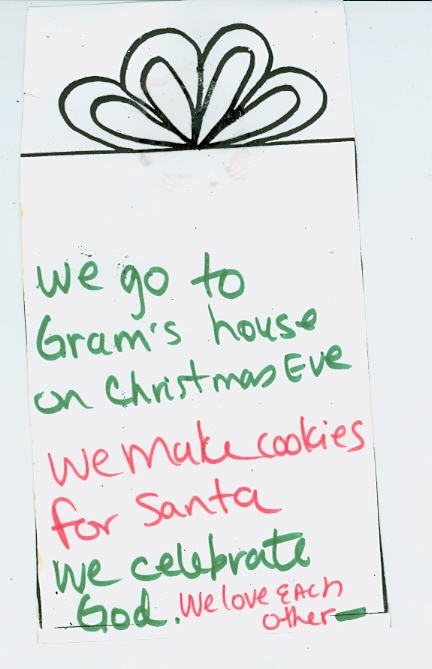 we go to
Gram's house
on Christmas Eve
we make cookies
for Santa
we celebrate
God. We love EAch
other